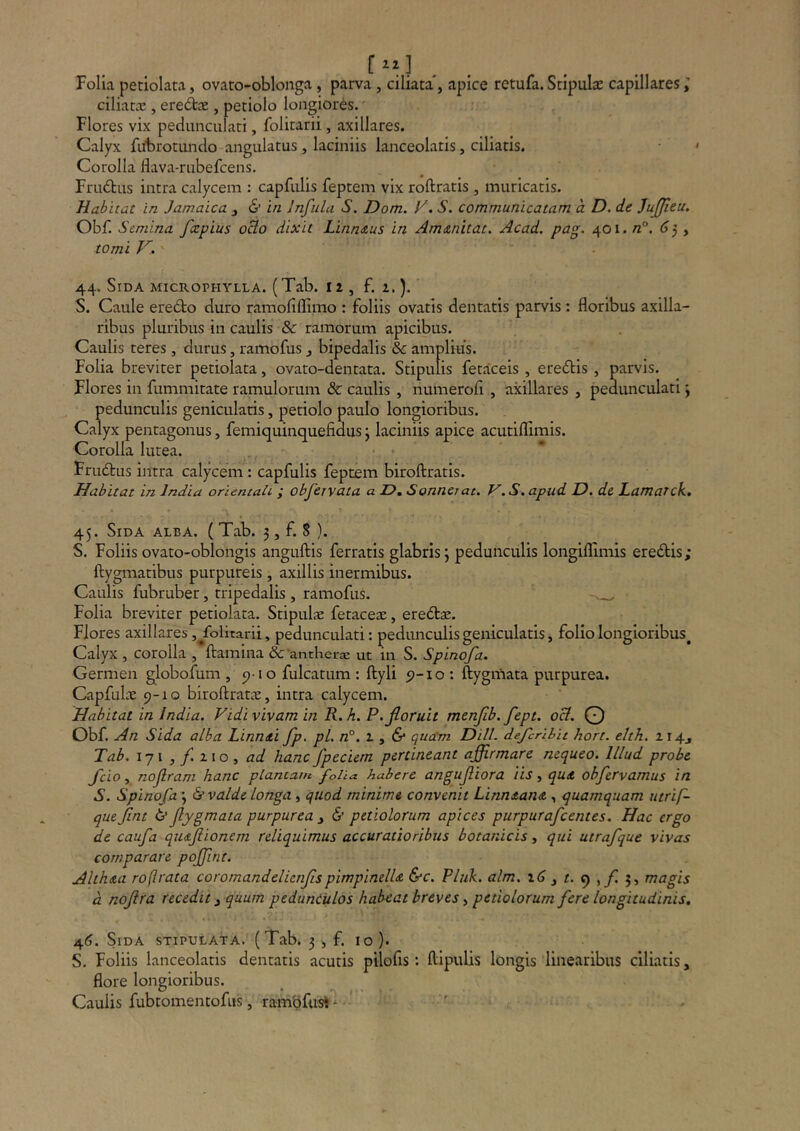 [ 22 ]
Folia petiolata, ovato-oblonga, parva, ciliata, apice retusa. Stipulæ capillares,
ciliatæ, erectæ, petiolo longiores.
Flores vix pedunculati, solitarii, axillares.
Calyx subrotundo angulatus, laciniis lanceolatis, ciliatis.
Corolla flava-rubescens.
Fructus intra calycem : capsulis septem vix rostratis, muricatis.
Habitat in Jamaica, & in Insula S. Dom. V. S. communicatam à D. de Jussieu.
Obs. Semina sæpius octo dixit Linnæus in Amænitat. Acad. pag. 401. n°. 65,
tomi V.
44. SIDA MICROPHYLLA. (Tab. 12, f. 2.).
S. Caule erecto duro ramosissimo : foliis ovatis dentatis parvis : floribus axilla-
ribus pluribus in caulis & ramorum apicibus.
Caulis teres, durus, ramosus, bipedalis & amplius.
Folia breviter petiolata, ovato-dentata. Stipulis setaceis, erectis, parvis.
Flores in summitate ramulorum & caulis, numerosi, axillares, pedunculati ;
pedunculis geniculatis, petiolo paulo longioribus.
Calyx pentagonus, semiquinquefidus ; laciniis apice acutissimis.
Corolla lutea.
Fructus intra calycem : capsulis septem birostratis.
Habitat in India orientali ; observata a D. Sonnerat. V. S. apud D. de Lamarck.
45. SIDA ALBA. ( Tab. 3, f. 8 ).
S. Foliis ovato-oblongis angustis serratis glabris ; pedunculis longissimis erectis ;
stygmatibus purpureis, axillis inermibus.
Caulis subruber, tripedalis, ramosus.
Folia breviter petiolata. Stipulæ setaceæ, erectæ.
Flores axillares, solitarii, pedunculati : pedunculis geniculatis, folio longioribus.
Calyx, corolla, stamina & antheræ ut in S. Spinosa.
Germen globosum, 9-10 sulcatum : styli 9-10 : stygmata purpurea.
Capsulæ 9-10 birostratæ, intra calycem.
Habitat in India. Vidi vivam in R. h. P. floruit mensib. sept. oct. ☉
Obs. An Sida alba Linnæi sp. pl. n°. 2, & quam Dill. describit hort. elth. 214,
Tab. 171, f. 210, ad hanc speciem pertineant affirmare nequeo. Illud probe
scio, nostram hanc plantam folia habere angustiora iis, quæ observamus in
S. Spinosa ; & valde longa, quod minime convenit Linnæanæ, quamquam utris-
que sint & stygmata purpurea, & petiolorum apices purpurascentes. Hac ergo
de causa quæstionem reliquimus accuratioribus botanicis, qui utrasque vivas
comparare possint.
Althæa rostrata coromandeliensis pimpinellæ &c. Pluk. alm. 26, t. 9, f. 3, magis
à nostra recedit, quum pedunculos habeat breves, petiolorum fere longitudinis.
46. SIDA STIPULATA. ( Tab. 3, f. 10 ).
S. Foliis lanceolatis dentatis acutis pilosis : stipulis longis linearibus ciliatis,
flore longioribus.
Caulis subtomentosus, ramosus